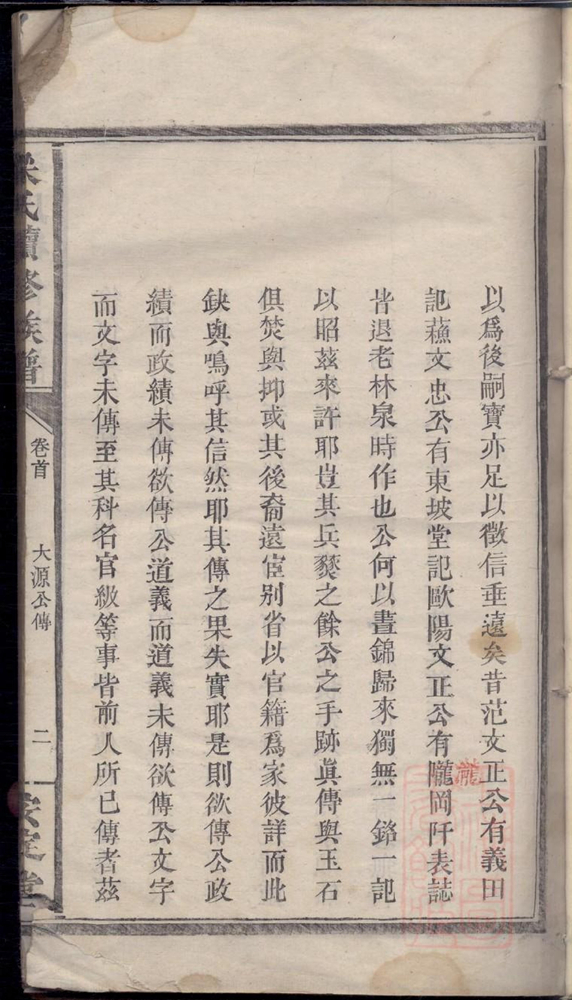 以爲後嗣寶亦足以徵信垂遠矣昔范文正公有義田
記蘓文忠公有東坡堂記歐陽文正公有隴岡阡表誌
瀧
皆退老林泉時作也公何以晝錦歸來獨無一銘一記
以昭茲來許耶豈其兵燹之餘公之手跡眞傳與玉石
俱焚與抑或其後裔遠宦别省以官籍爲家彼詳而此
缺與嗚呼其信然耶其傳之果失實耶是則欲傳公政
績而政績未傳欲傳公道義而道義未傳欲傳公文字
而文字未傳至其科名官級等事皆前人所已傳者茲
氏續修族譜 卷首 大源公傳 二 安定堂